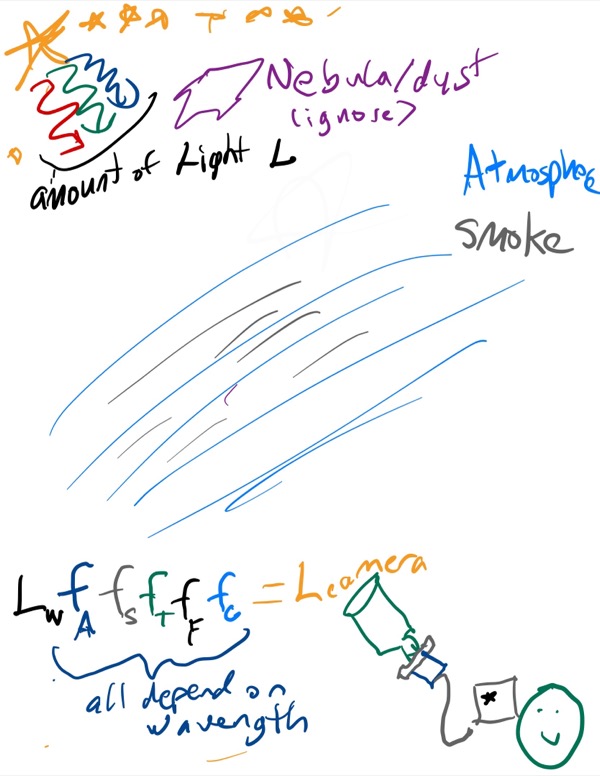 Nebula/dust
(ignore)
amount of Light L
Atmosphee
Smoke
L_w f_A f_S f_T f_F f_C = L camera
all depend on
wavength